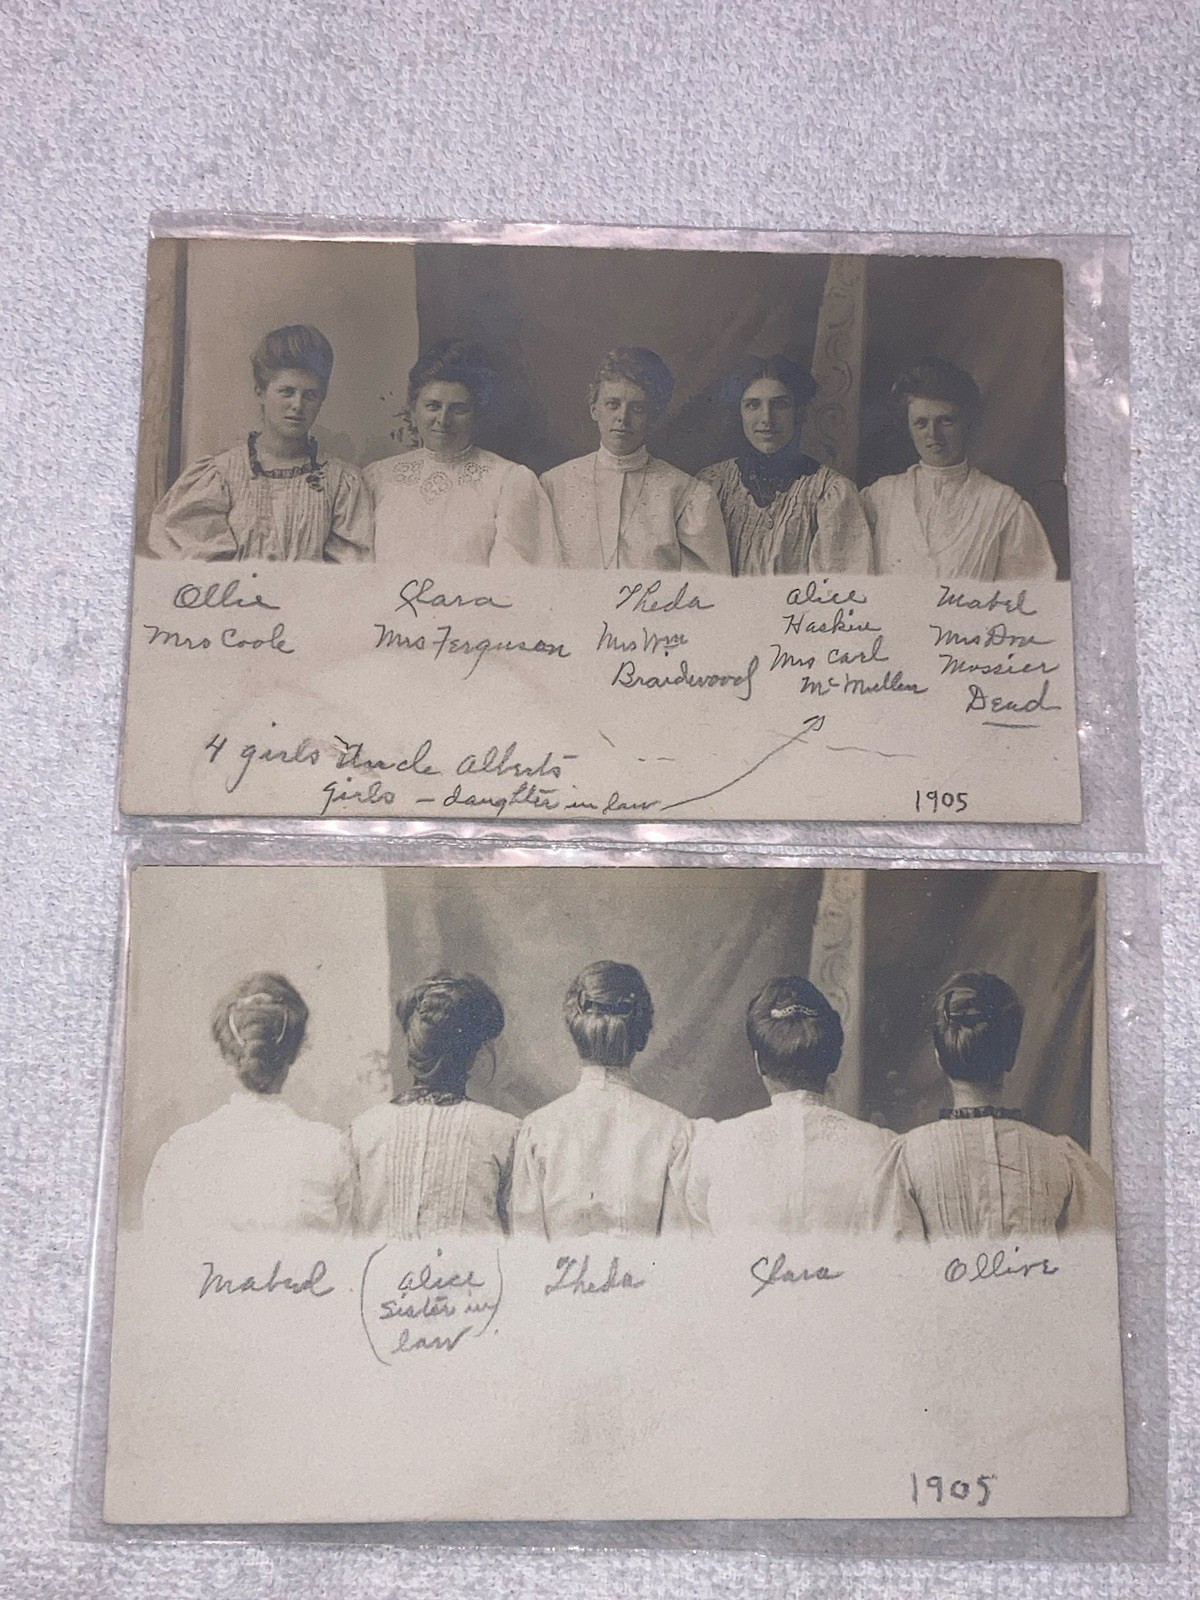 Ollie
Mrs Coole
Clara
Mrs Ferguson
Theda
Mrs Wm
Braidwood
Alice
Haskin
Mrs Carl
McMullen
Mabel
Mrs Don
Mossier
Dead
4 girls Uncle Alberts
girls - daughter in law
1905
Mabel
(Alice
Sister in
law)
Theda
Clara
Ollive
1905